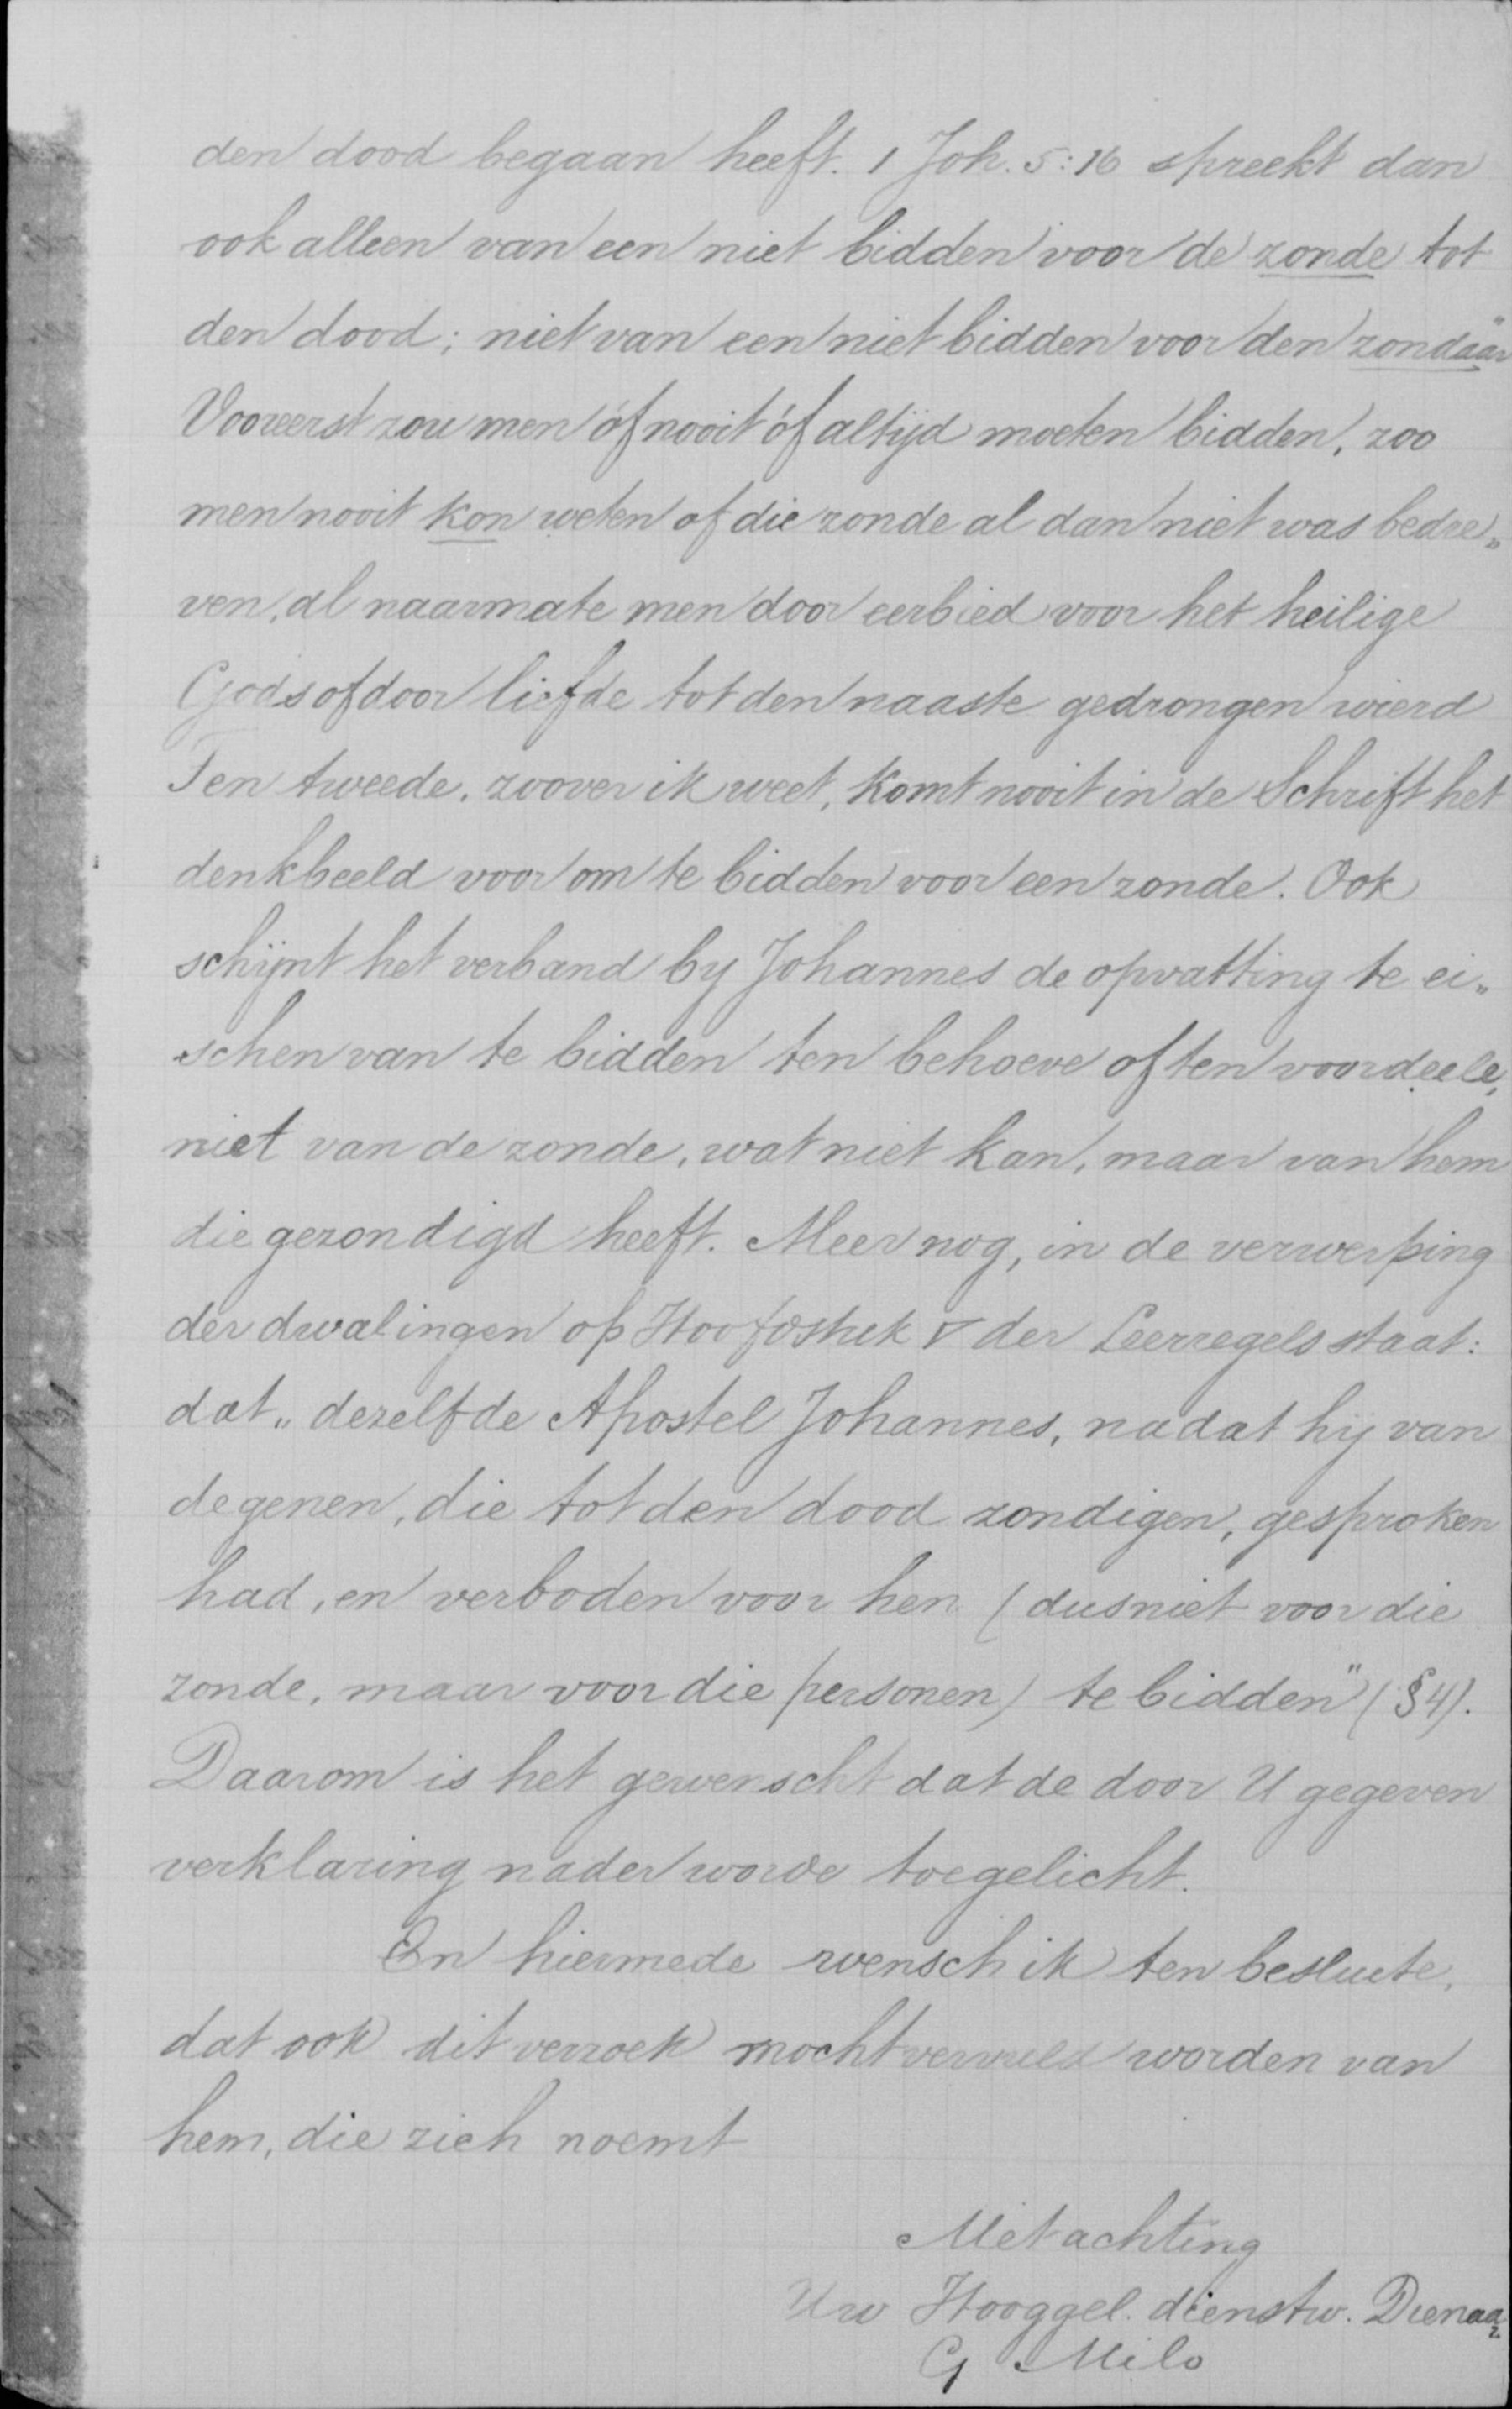 den dood begaan heeft. 1 Joh. 5:16 spreekt dan
ook alleen van een niet bidden voor de zonde tot
den dood; niet van een niet bidden voor den zondaar"
Vooreerst zou men óf nooit óf altijd moeten bidden, zoo
men nooit kon weten of die zonde al dan niet was bedre„
ven, al naarmate men door eerbied voor het heilige
Gods of door liefde tot den naaste gedrongen wierd
Ten tweede, zoover ik weet, komt nooit in de Schrift het
denkbeeld voor om te bidden voor een zonde. Ook
schijnt het verband by Johannes de opvatting te ei„
schen van te bidden ten behoeve of ten voordeele,
niet van de zonde, wat niet kan, maar van hem
die gezondigd heeft. Meer nog, in de verwerping
der dwalingen op Hoofdstuk V der Leerregels staat:
dat „dezelfde Apostel Johannes, nadat hij van
degenen, die tot den dood zondigen, gesproken
had, en verboden voor hen (dus niet voor die
zonde, maar voor die personen) te bidden" (§4).
Daarom is het gewenscht dat de door U gegeven
verklaring nader worde toegelicht.
En hiermede wensch ik ten besluite,
dat ook dit verzoek mocht vervuld worden van
hem, die zich noemt
Met achting
Uw Hooggel. dienstw. Dienaar
G Milo